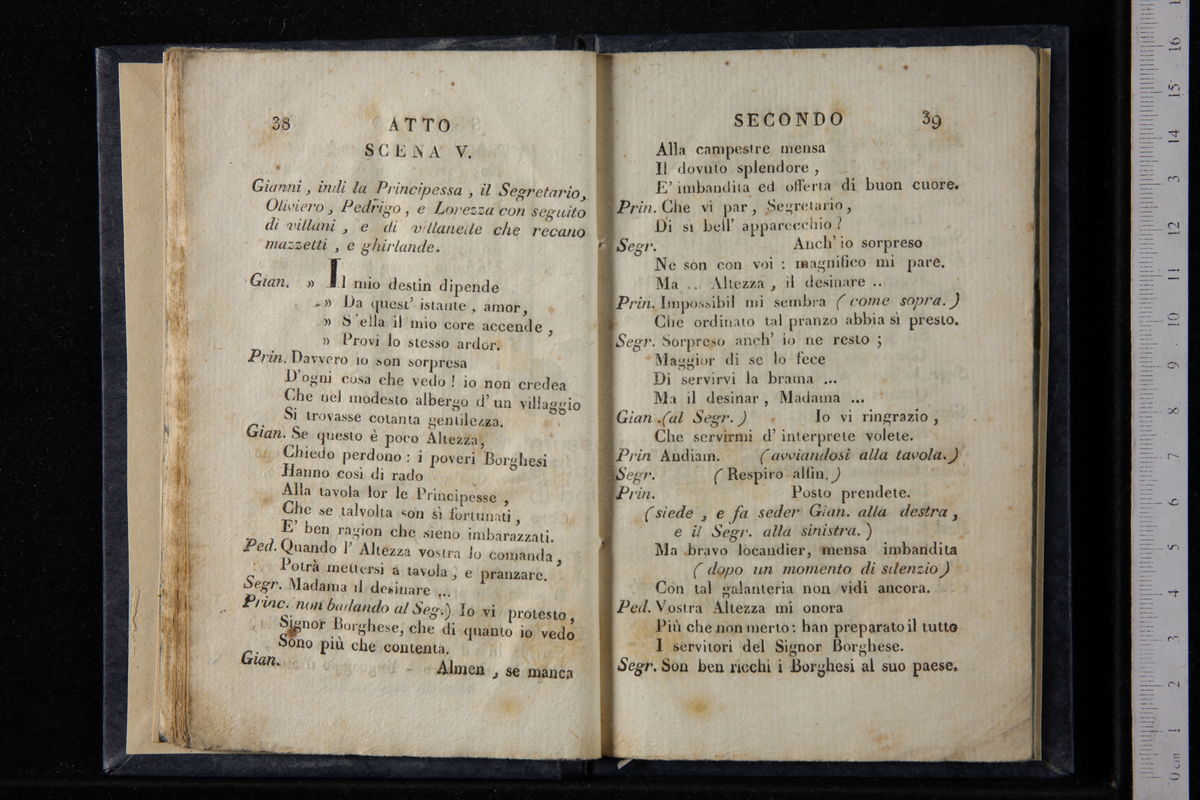 38 ATTO
SCENA V.
Gianni, indi la Principessa, il Segretario,
Oliviero, Pedrigo, e Lorezza con seguito
di villani, e di villanelle che recano
mazzetti, e ghirlande.
Gian. » Il mio destin dipende
» Da quest' istante, amor,
» S'ella il mio core accende,
» Provi lo stesso ardor.
Prin. Davvero io son sorpresa
D'ogni cosa che vedo! io non credea
Che nel modesto albergo d'un villaggio
Si trovasse cotanta gentilezza.
Gian. Se questo è poco Altezza,
Chiedo perdono: i poveri Borghesi
Hanno così di rado
Alla tavola lor le Principesse,
Che se talvolta son sì fortunati,
E' ben ragion che sieno imbarazzati.
Ped. Quando l' Altezza vostra lo comanda,
Potrà mettersi a tavola, e pranzare.
Segr. Madama il desinare ...
Princ. non badando al Seg.) Io vi protesto,
Signor Borghese, che di quanto io vedo
Sono più che contenta.
Gian. Almen, se manca
SECONDO 39
Alla campestre mensa
Il dovuto splendore,
E' imbandita ed offerta di buon cuore.
Prin. Che vi par, Segretario,
Di si bell' apparecchio?
Segr. Anch' io sorpreso
Ne son con voi: magnifico mi pare.
Ma ... Altezza, il desinare ..
Prin. Impossibil mi sembra (come sopra.)
Che ordinato tal pranzo abbia sì presto.
Segr. Sorpreso anch' io ne resto;
Maggior di se lo fece
Di servirvi la brama ...
Ma il desinar, Madama ...
Gian.(al Segr.) Io vi ringrazio,
Che servirmi d' interprete volete.
Prin Andiam. (avviandosi alla tavola.)
Segr. (Respiro alfin.)
Prin. Posto prendete.
(siede, e fa seder Gian. alla destra,
e il Segr. alla sinistra.)
Ma bravo locandier, mensa imbandita
(dopo un momento di silenzio)
Con tal galanteria non vidi ancora.
Ped. Vostra Altezza mi onora
Più che non merto: han preparato il tutto
I servitori del Signor Borghese.
Segr. Son ben ricchi i Borghesi al suo paese.
0 cm 1 2 3 4 5 6 7 8 9 10 11 12 13 14 15 16